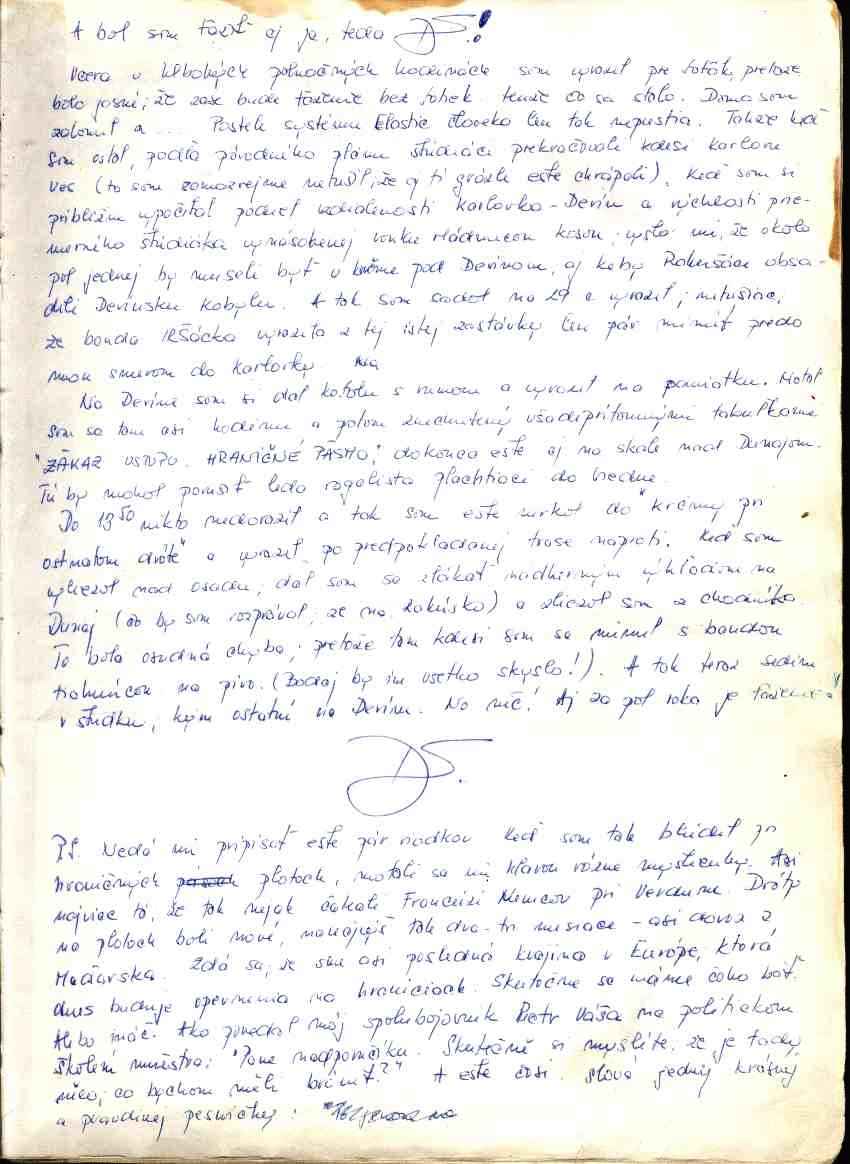 A bol som ťažší aj ja, teda DS!
Včera v hlbokých polnočných hodinách som vyrazil pre foťák, pretože
bolo jasné, že zase bude ťaženie bez fotiek. Lenže čo sa stalo. Doma som
zalomil a ... Posteľ systému Elastic človeka len tak nepustia. Takže keď
som vstal, podľa pôvodného plánu študáci prekračovali kdesi Karlovu
Ves (to som samozrejme netušil, že aj tí grázli ešte chrápali). Keď som si
približne vypočítal podiel vzdialenosti Karlovka - Devín a rýchlosti prie-
merného študáka vynásobenej vonku vládnucou kosou, vyšlo mi, že okolo
pol jednej by museli byť v krčme pod Devínom, aj keby Rakušáci obsa-
dili Devínsku Kobylu. A tak som sadol na 29 a vyrazil, netušiac,
že banda vyrazila z tej istej zastávky len pár minút predo
mnou smerom do Karlovky.
Na Devíne som si dal kofolu s rumom a vyrazil na pamiatku. Motal
som sa tam asi hodinu a potom znechutený všadeprítomnými tabuľkami
"ZÁKAZ VSTUPU. HRANIČNÉ PÁSMO," dokonca ešte aj na skale nad Dunajom.
Tú by mohol porušiť leda rogalista plachtiaci do Viedne.
Do 13⁵⁰ nikto nedorazil a tak som ešte kukol do "krčmy pri
ostnatom drôte" a vyrazil po predpokladanej trase naproti. Keď som
vyliezol nad osadu, dal som sa zlákať nádherným výhľadom na
Dunaj (čo by som rozprával, že na Rakúsko) a zliezol som z chodníka.
To bola osudná chyba, pretože tam kdesi som sa minul s bandou
tiahnúcou na pivo. (Bodaj by im všetko skyslo!). A tak teraz sedím
v študku, kým ostatní na Devíne. No nič! Aj za pol roka je ťaženie"
DS.
P.S. Nedá mi pripísať ešte pár riadkov. Keď som tak blúdil pri
hraničných plotoch, motali sa mi hlavou rôzne myšlienky. Asi
najviac tá, že tak nejak čakali Francúzi Nemcov pri Verdune. Drôty
na plotoch boli nové, nanajvýš tak dva-tri mesiace - asi dovoz z
Maďarska. Zdá sa, že sme asi posledná krajina v Európe, ktorá
dnes buduje opevnenia na hraniciach. Skutočne sa máme čoho báť.
Alebo ináč. Ako povedal môj spolubojovník Petr Váša na politickom
školení mužstva: "Pane nadporučíku. Skutečně si myslíte, že je tady
něco, co bychom měli bránit?" A ešte čosi. Slová jednej krásnej
a pravdivej pesničky: